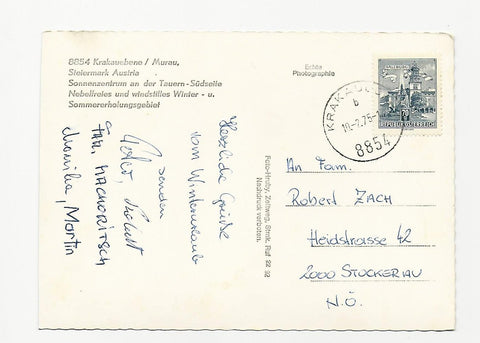 8854 Krakauebene / Murau,
Steiermark Austria
Sonnenzentrum an der Tauern-Südseite
Nebelfreies und windstilles Winter - u.
Sommererholungsgebiet
Echte
Photographie
REPUBLIK ÖSTERREICH
KRAKAU
b
8854
Herzliche Grüße
vom Winterurlaub
senden
Fam.
Monika, Martin
Foto-Hruby, Zeltweg, Stmk. Ruf 22 32
Nachdruck verboten.
An Fam.
Robert ZACH
Heidstrasse 42
2000 STOCKERAU
N.Ö.